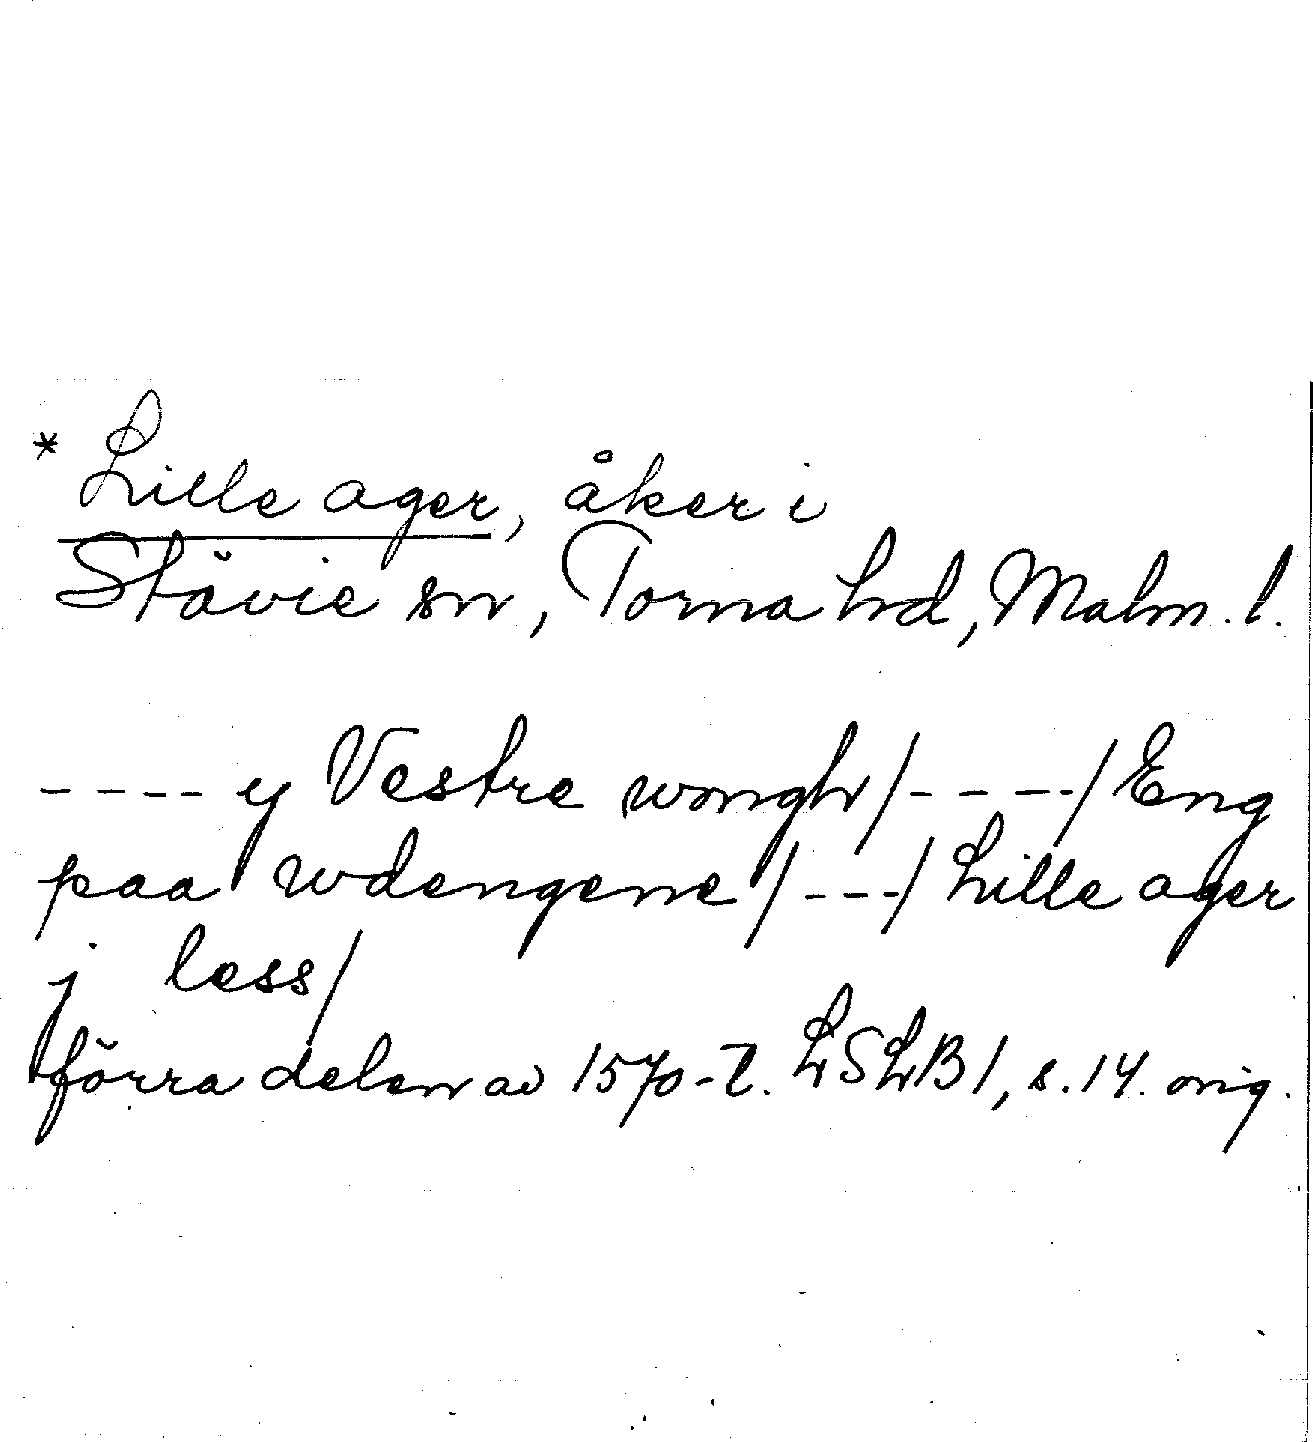 * Lille ager, åker i
Stävie sn, Torna hd, Malm. l.
---- y Vestre wongh/----/Eng
paa wdengene/---/Lille ager
j less/
förra delen av 1570-t. LSLB 1, s. 14. orig.